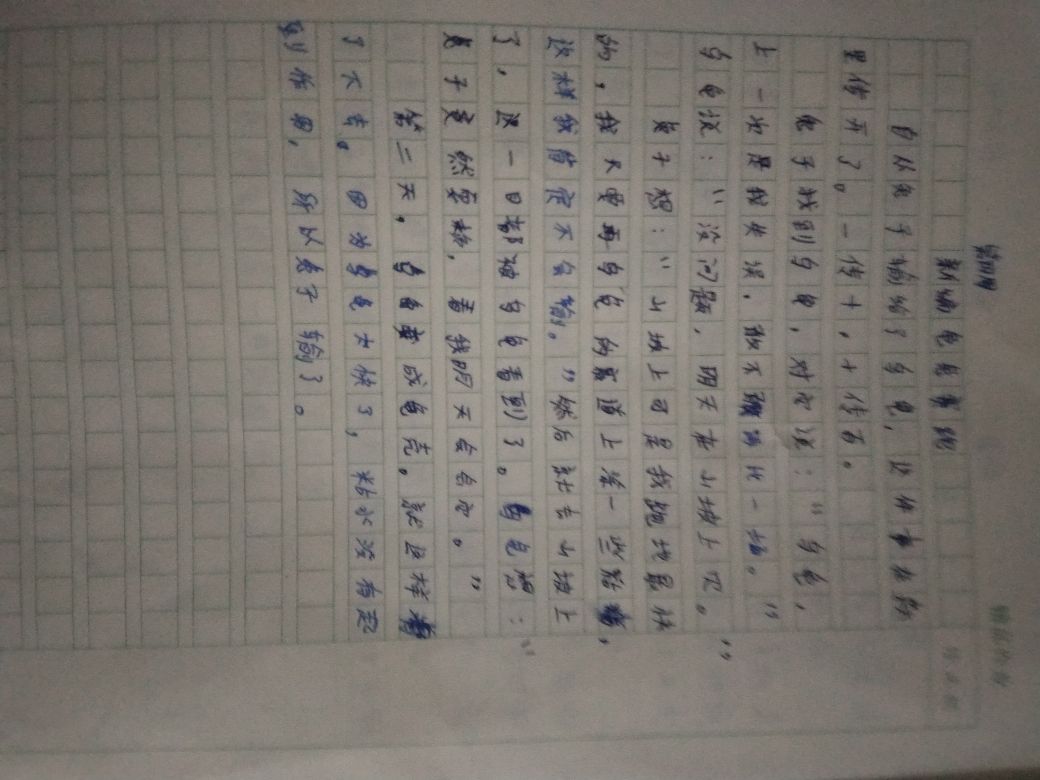 新编龟兔赛跑
自从兔子输给了乌龟,这件事在森
里传开了。一传十,十传百。
兔子找到乌龟,对它说:"乌龟,
上一次是我失误,敢不敢再比一场。"
乌龟说:"没问题,明天在山坡上见。"
兔子想:"山坡上可是我跑地最快
的,我只要再乌龟的赛道上涂一些胶,
这样我肯定不会输。"然后就去山坡上
了,这一日都被乌龟看到了。乌龟想:"
兔子竟然耍诈,看我明天
第二天,乌龟缩成龟壳。就这样
了下去。因为乌龟太快了,粘水没有起
到作用,所以兔子输了。